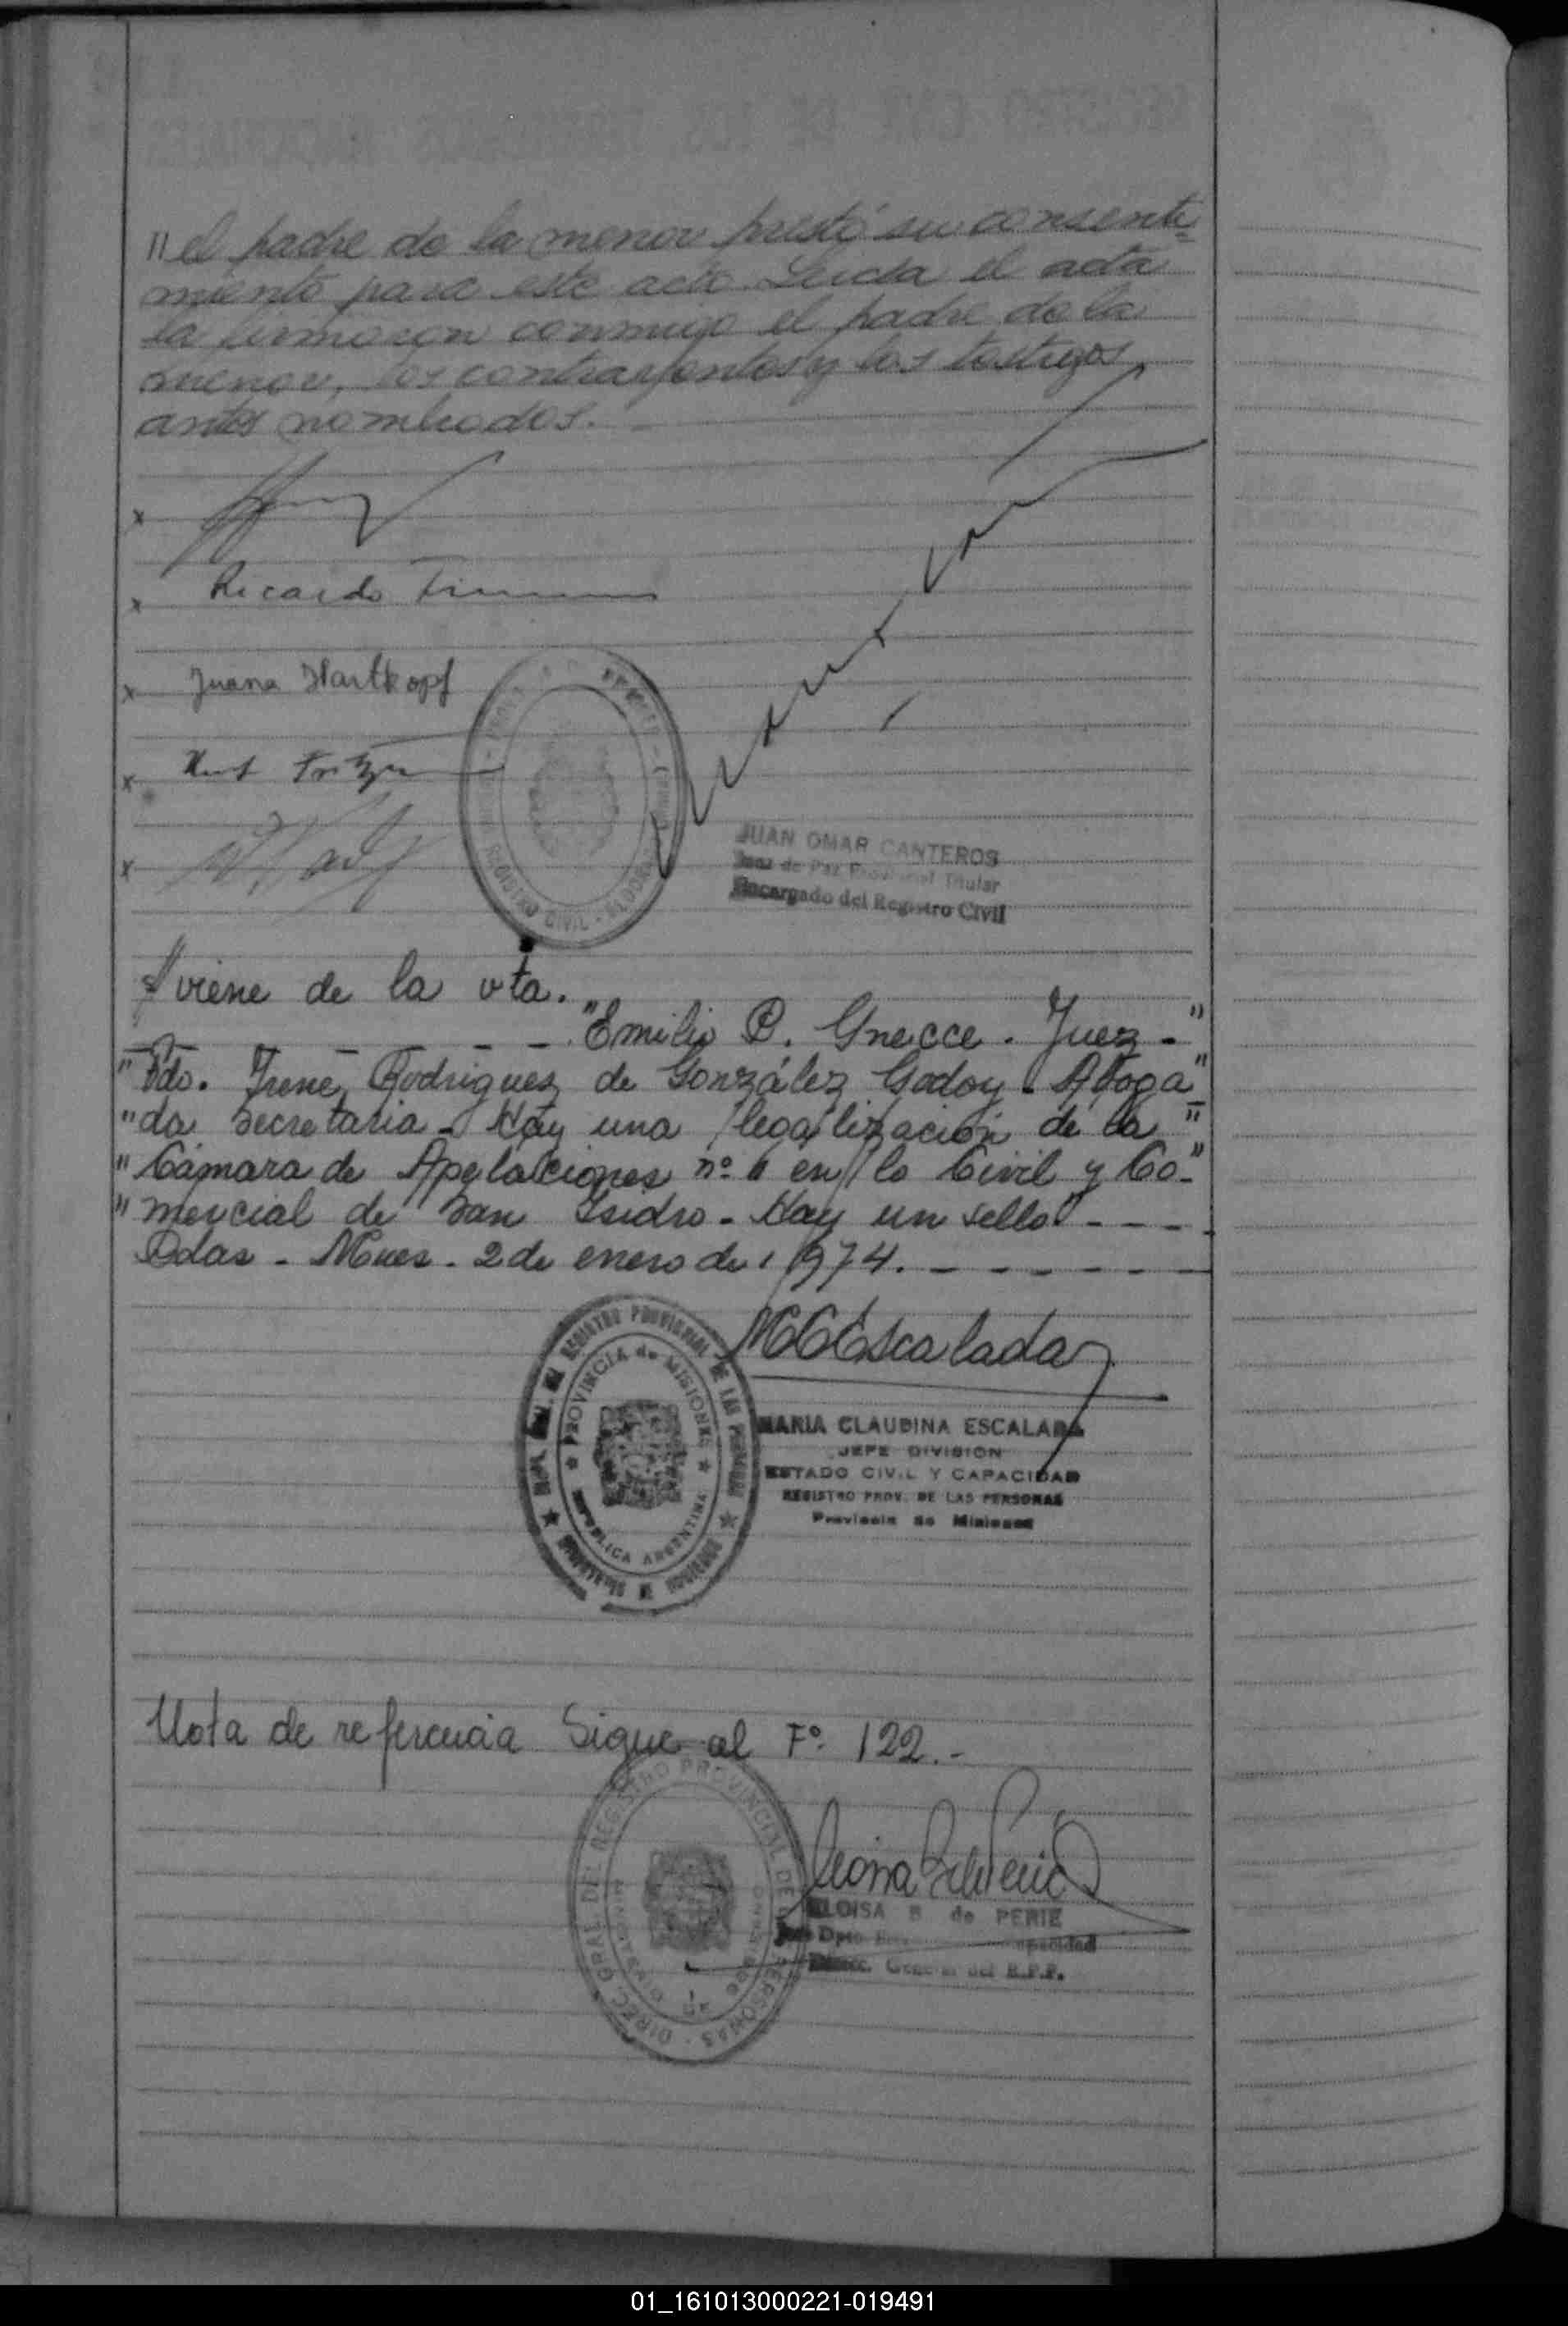 "el padre de la menor prestó su consenti=
miento para este acto. Leida el acta
la firmaron conmigo el padre de la
menor, los contrayentes y los testigos
antes nombrados.
x
x Ricardo
x Juana Hartkopf
x Kurt
x
REGISTRO CIVIL
JUAN OMAR CANTEROS
Juez de Paz Provincial Titular
Encargado del Registro Civil
//viene de la vta.
- - - "Emilio P. Gnecce. Juez-"
"Fdo. Irene Rodriguez de González Godoy - Aboga"
"da Secretaria - Hay una legalización de la"
"Cámara de Apelaciones nº en lo Civil y Co-"
"mercial de San Isidro - Hay un sello" - - - -
Pdas - Mnes. 2 de enero de 1974. - - - - - -
MCEscalada
DEL REGISTRO PROVINCIAL DE LAS PERSONAS
PROVINCIA de MISIONES
REPUBLICA ARGENTINA
MARIA CLAUDINA ESCALADA
JEFE DIVISION
ESTADO CIVIL Y CAPACIDAD
REGISTRO PROV. DE LAS PERSONAS
Provincia de Misiones
Nota de referencia Sigue al Fº 122.-
DIREC. GRAL. DEL REGISTRO PROVINCIAL DE LAS PERSONAS
ELOISA B de PERIE
Jefe Dpto capacidad
Direcc. General del R.P.P.
01_161013000221-019491